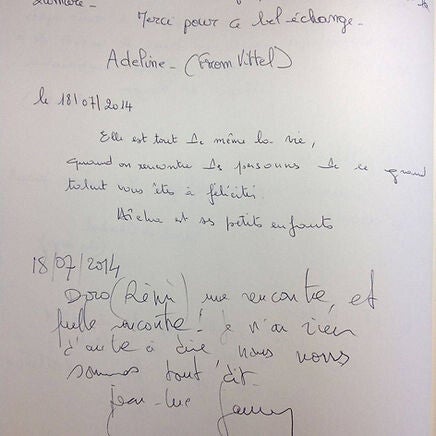 Merci pour ce bel échange -
Adeline - (From Vittel)
le 18/07/2014
Elle est tout de même la vie,
quand on rencontre des personnes de ce grand
talent vous êtes à féliciter.
et ses petits enfants
18/07/2014
Doro (Rémi) une rencontre, et
quelle rencontre! Je n'ai rien
d'autre à dire nous nous
sommes tout dit -
Jean-luc